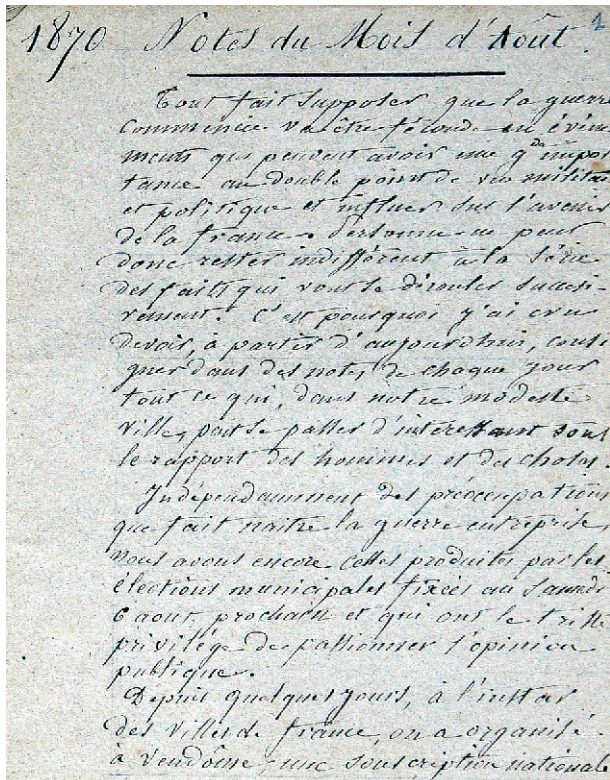 1
1870 Notes du Mois d'Août.
Tout fait supposer que la guerre
commencée va être féconde en évène
ments qui peuvent avoir une gde impor
tance au double point de vue militai
et politique et influer sur l'avenir
de la france. Personne ne peut
donc rester indifférent à la série
des faits qui vont se dérouler successi-
vement. C'est pourquoi j'ai cru
devoir, à partir d'aujourd'hui, consi
gner dans des notes de chaque jour
tout ce qui, dans notre modeste
ville, peut se passer d'intéressant sous
le rapport des hommes et des choses.
Indépendamment des préoccupations
que fait naitre la guerre entreprise,
nous avons encore celles produites par les
élections municipales fixées au samedi
6 aout prochain et qui ont le triste
privilége de passionner l'opinion
publique.
Depuis quelques jours, à l'instar
des villes de france, on a organisé
à Vendôme, une souscription nationale